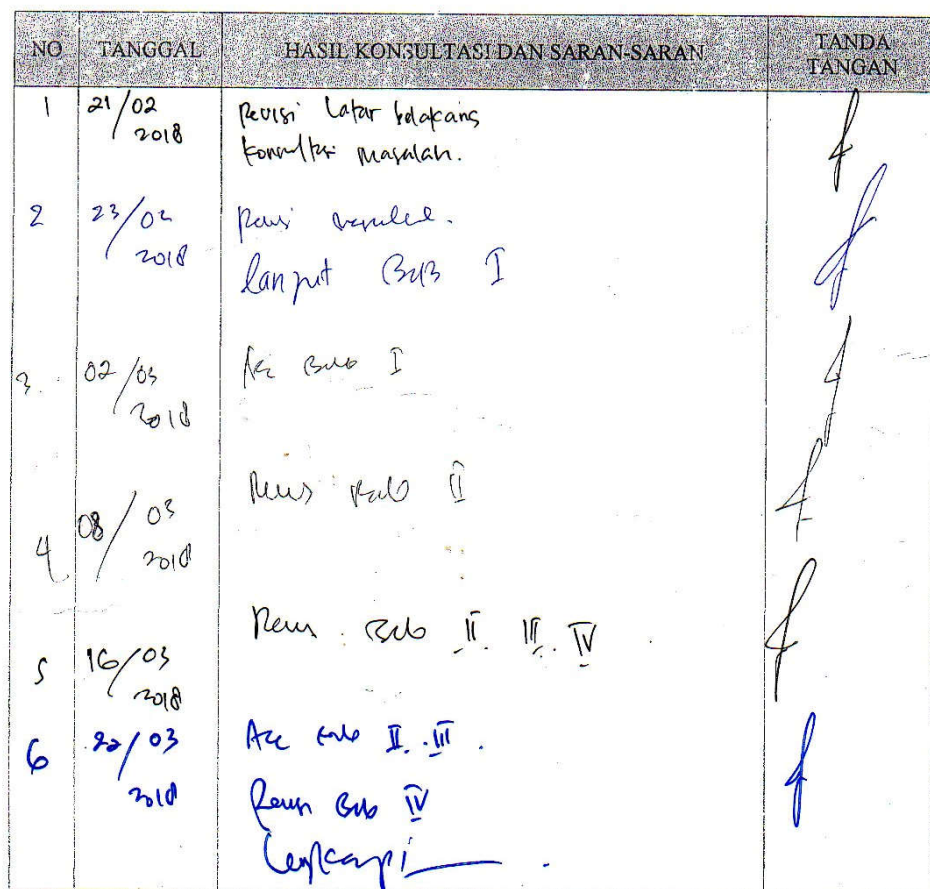 NO TANGGAL HASIL KONSULTASI DAN SARAN-SARAN TANDA TANGAN
1 21/02 2018 Revisi Latar belakang
Konsultasi Masalah.
2 23/02 2018 Revisi
lanjut Bab I
3. 02/03 2018 Acc Bab I
4 08/03 2018 Revisi Bab II
5 16/03 2018 Revisi Bab II. III. IV
6 22/03 2018 Acc Bab II. III.
Revisi Bab IV
Lengkapi